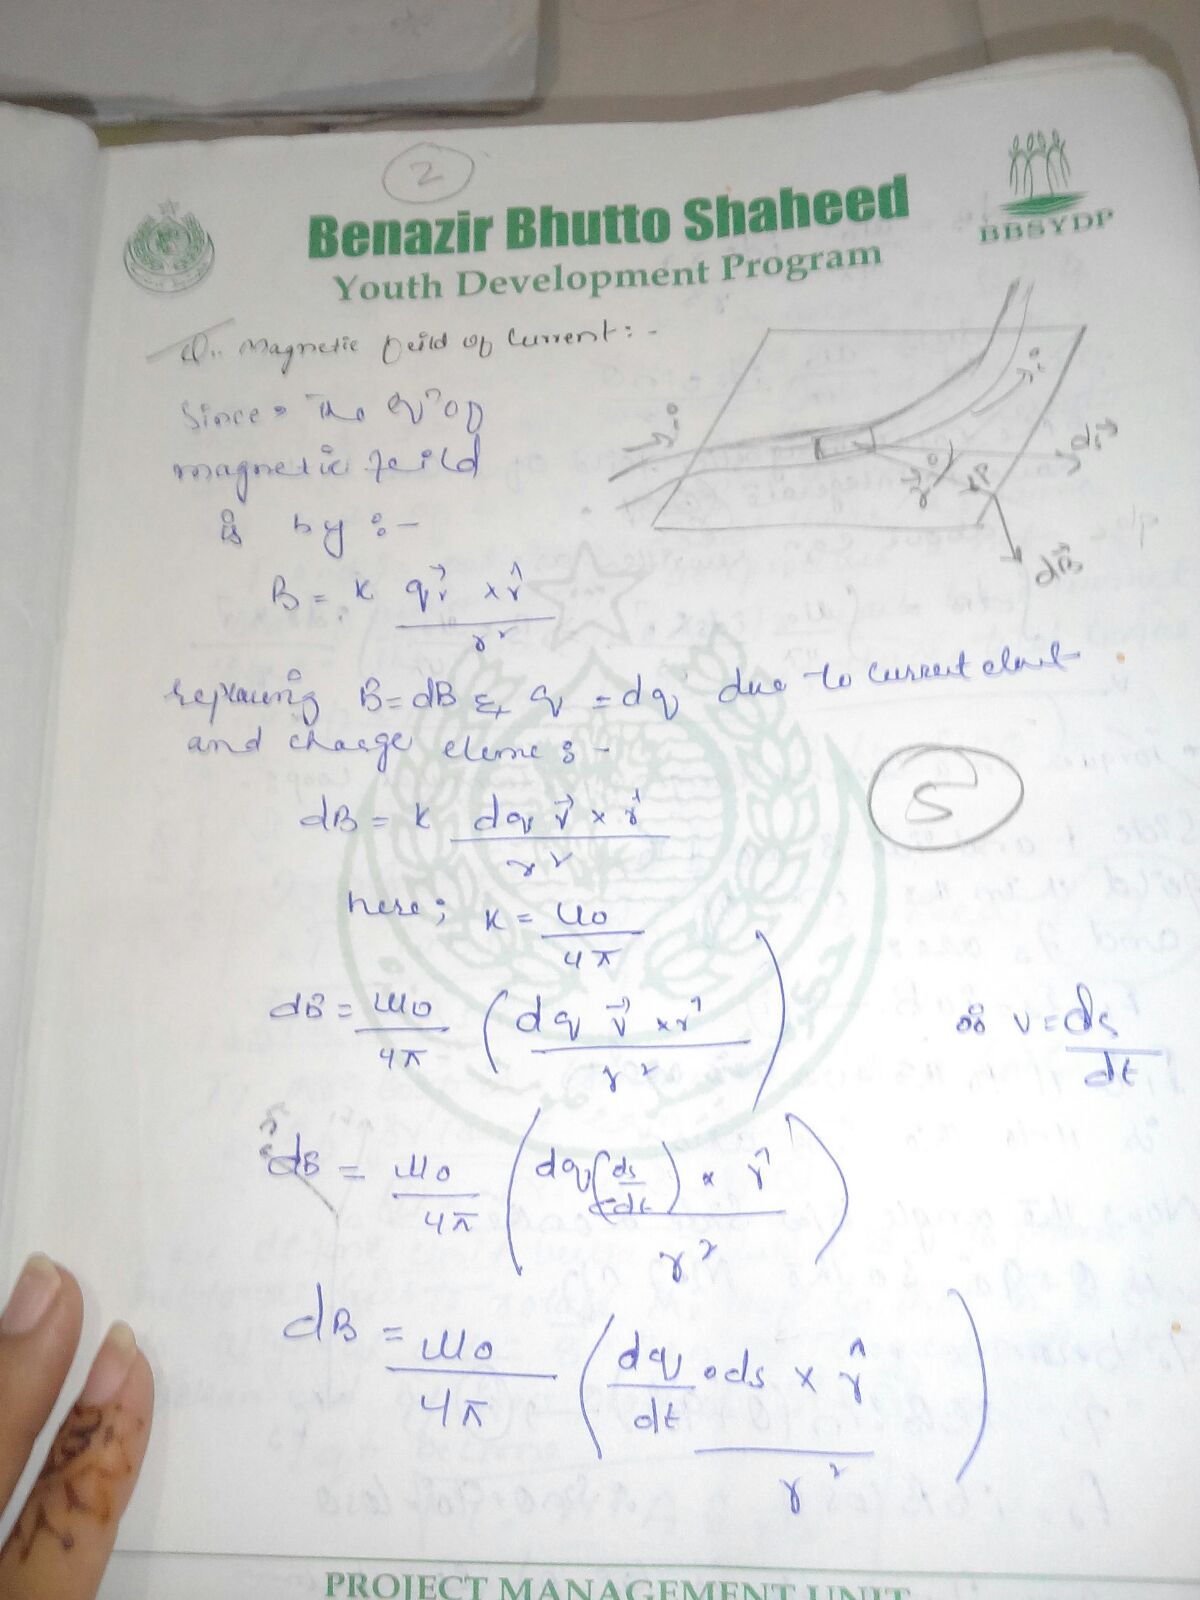 2
Benazir Bhutto Shaheed
Youth Development Program
BBSYDP
Q:. Magnetic feild of current: -
Since, The eqⁿ of
magnetic feild
is by :-
B = K qv⃗ × r̂ / r²
replacing B = dB & q = dq due to current elmet
and charge eleme :-
dB = K dq v⃗ × r̂ / r²
here; K = μ₀ / 4π
5
dB = μ₀ / 4π ( dq v⃗ × r̂ / r² ) ∴ v = ds / dt
dB = μ₀ / 4π ( dq ( ds / dt ) × r̂ / r² )
dB = μ₀ / 4π ( dq / dt . ds × r̂ / r² )
i
i
ds⃗
r
P
dB⃗
PROJECT MANAGEMENT UNIT